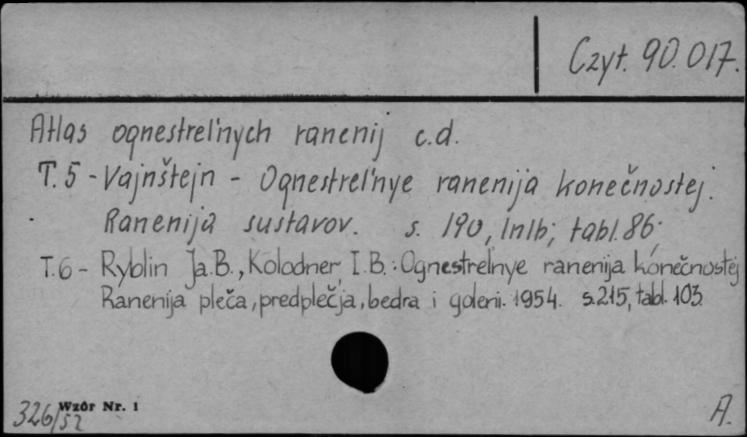 Czyt. 90.017.
Atlas ognestrel'nych ranenij c.d.
T.5 - Vajnštejn - Ognestrel'nye ranenija konečnostej.
Ranenija sustavov. s. 190, lnlb; tabl. 86;
T.6 - Ryblin Ja.B., Kolodner I.B.: Ognestrelnye ranenija konečnostej
Ranenija pleča, predplečja, bedra i goleni. 1954. s.215, tabl. 103.
Wzór Nr. 1
326/52
A.